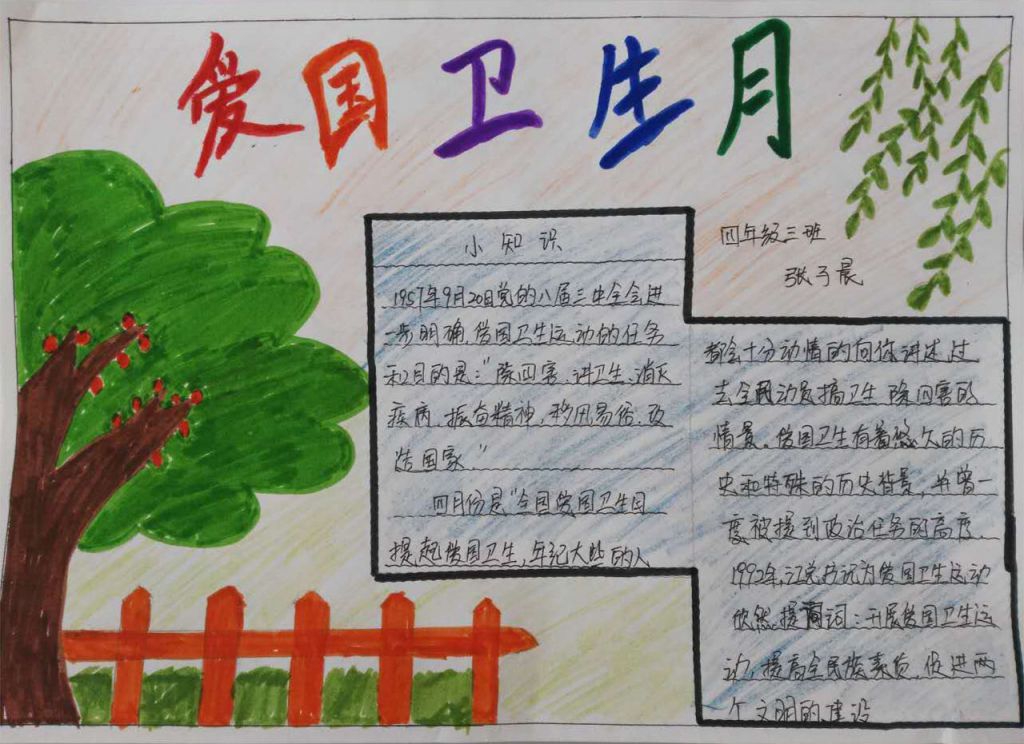 爱国卫生月
四年级三班
张子晨
小知识
1957年9月20日党的八届三中全会进
一步明确,爱国卫生运动的任务
和目的是:“除四害,讲卫生,消灭
疾病,振奋精神,移风易俗,改
造国家.”
四月份是“全国爱国卫生月
提起爱国卫生,年纪大些的人
都会十分动情的向你讲述过
去全民动员搞卫生 除四害的
情景。爱国卫生有着悠久的历
史和特殊的历史背景,并曾一
度被提到政治任务的高度.
1992年,江总书记为爱国卫生运动
欣然提词:开展爱国卫生运
动,提高全民族素质,促进两
个文明的建设